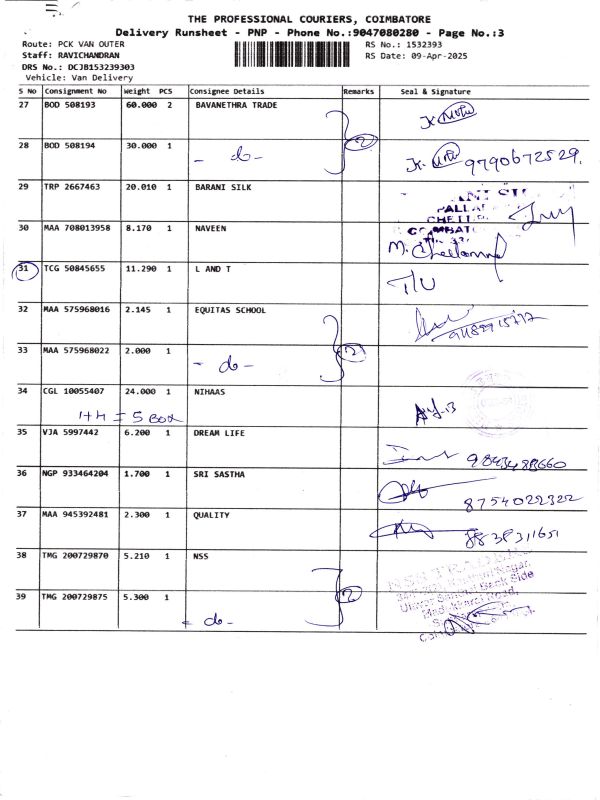 THE PROFESSIONAL COURIERS, COIMBATORE
Delivery Runsheet - PNP - Phone No.:9047080280 - Page No.:3
Route: PCK VAN OUTER
RS No.: 1532393
Staff: RAVICHANDRAN
RS Date: 09-Apr-2025
DRS No.: DCJB153239303
Vehicle: Van Delivery
S No Consignment No Weight PCS Consignee Details Remarks Seal & Signature
27 BOD 508193 60.000 2 BAVANETHRA TRADE
28 BOD 508194 30.000 1 - do - 2 9790672529.
29 TRP 2667463 20.010 1 BARANI SILK
30 MAA 708013958 8.170 1 NAVEEN
31 TCG 50845655 11.290 1 L AND T T/U
32 MAA 575968016 2.145 1 EQUITAS SCHOOL
33 MAA 575968022 2.000 1 - do - 2
34 CGL 10055407 24.000 1 NIHAAS
1+4 = 5 Box
35 VJA 5997442 6.200 1 DREAM LIFE 9843488660
36 NGP 933464204 1.700 1 SRI SASTHA 8754022322
37 MAA 945392481 2.300 1 QUALITY 8838311651
38 TMG 200729870 5.210 1 NSS
39 TMG 200729875 5.300 1 - do - 2